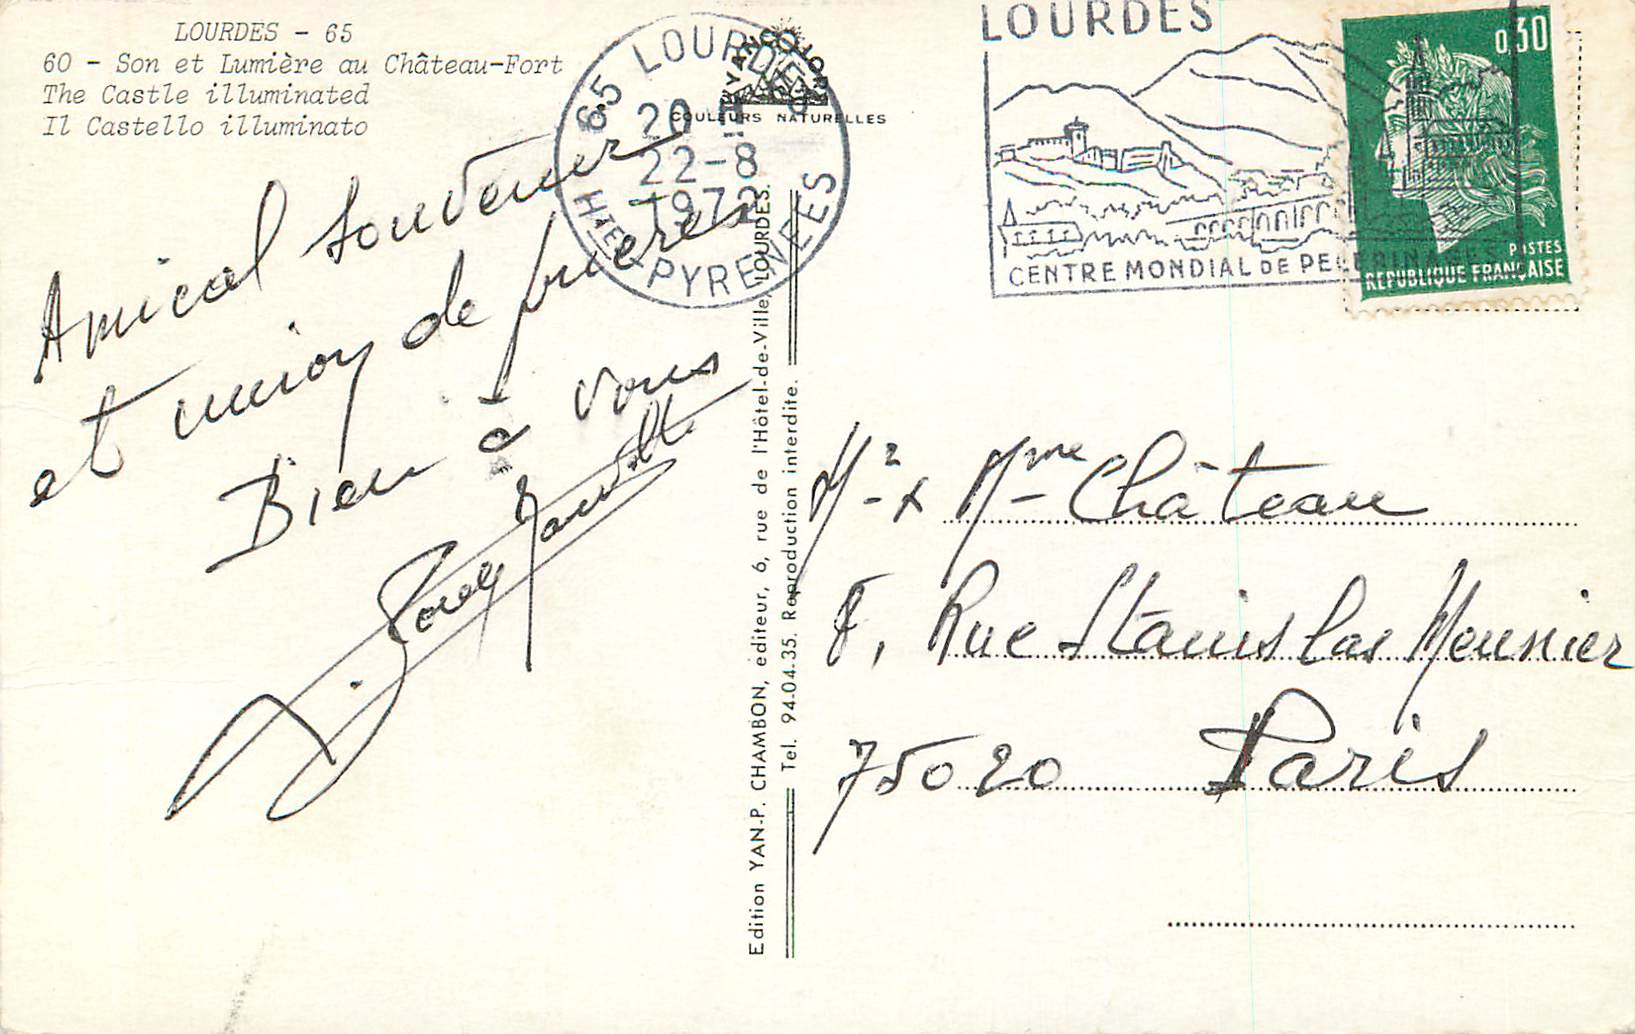 LOURDES - 65
60 - Son et Lumière au Château-Fort
The Castle illuminated
Il Castello illuminato
YAN COLOR
COULEURS NATURELLES
65 LOURDES
20 H
22-8
1972
Htes PYRENEES
LOURDES
CENTRE MONDIAL DE PELERINAGE
0,30
POSTES
REPUBLIQUE FRANÇAISE
Amical souvenir
et union de prières
Bien à vous
Edition YAN-P. CHAMBON, éditeur, 6, rue de l'Hôtel-de-Ville, LOURDES.
Tel. 94-04-35. Reproduction interdite.
Mr & Mme Château
8, Rue Stanislas Meunier
75020 Paris